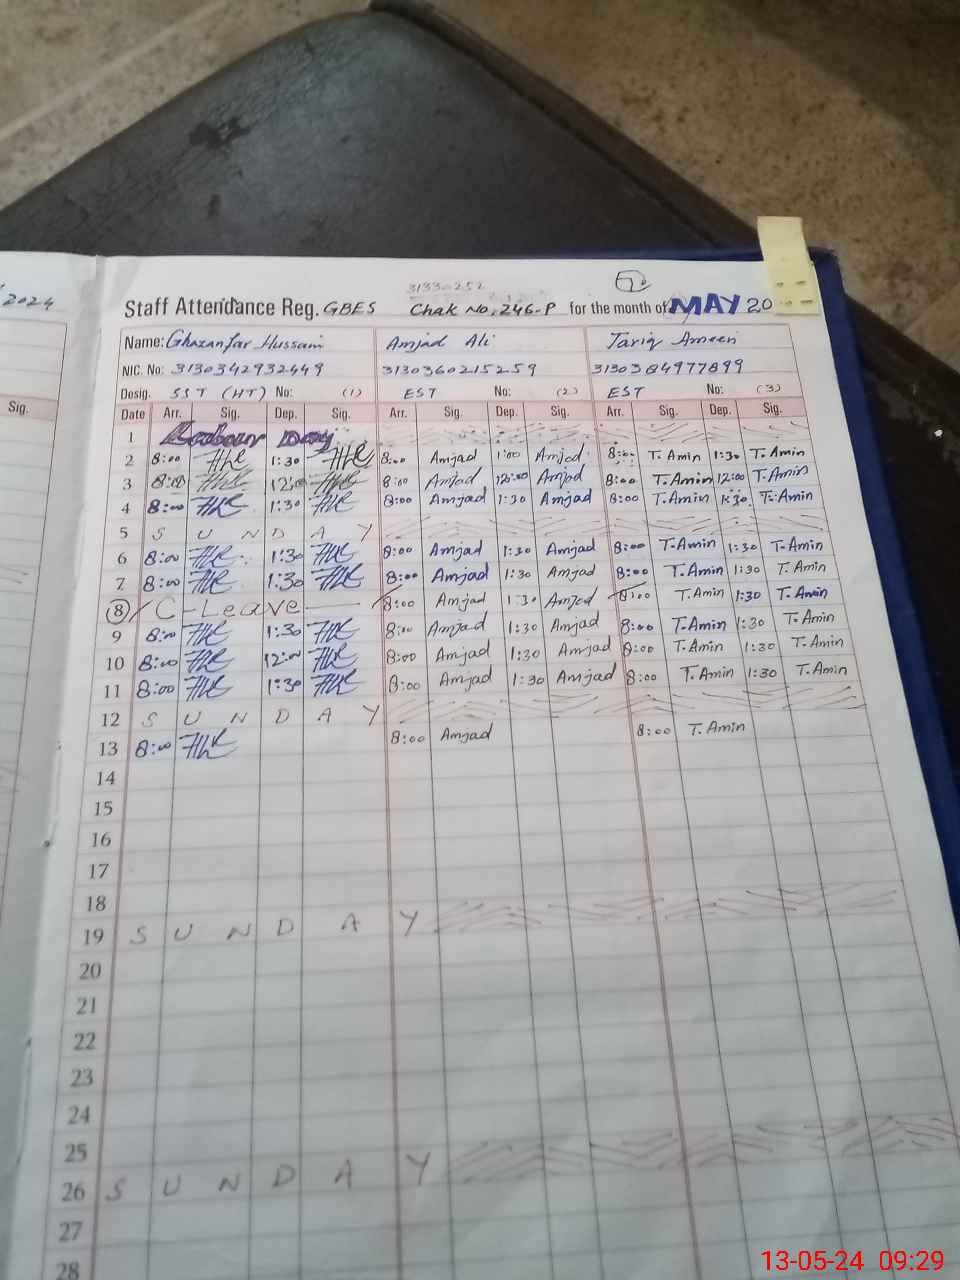 2024
31330252
52
Staff Attendance Reg. GBES Chak No, 246-P for the month of MAY 20
Name: Ghazanfar Hussain Amjad Ali Tariq Ameen
NIC. No: 3130342932449 3130360215259 3130384977899
Desig. SST (HT) No: (1) EST No: (2) EST No: (3)
Sig. Date Arr. Sig. Dep. Sig. Arr. Sig. Dep. Sig. Arr. Sig. Dep. Sig.
1 Labour Day
2 8:00 1:30 8:00 Amjad 1:00 Amjad 8:00 T. Amin 1:30 T. Amin
3 8:00 12:00 8:00 Amjad 12:00 Amjad 8:00 T. Amin 12:00 T. Amin
4 8:00 1:30 8:00 Amjad 1:30 Amjad 8:00 T. Amin 1:30 T. Amin
5 S U N D A Y
6 8:00 1:30 8:00 Amjad 1:30 Amjad 8:00 T. Amin 1:30 T. Amin
7 8:00 1:30 8:00 Amjad 1:30 Amjad 8:00 T. Amin 1:30 T. Amin
8 C-Leave 8:00 Amjad 1:30 Amjad 8:00 T. Amin 1:30 T. Amin
9 8:00 1:30 8:00 Amjad 1:30 Amjad 8:00 T. Amin 1:30 T. Amin
10 8:00 12:00 8:00 Amjad 1:30 Amjad 8:00 T. Amin 1:30 T. Amin
11 8:00 1:30 8:00 Amjad 1:30 Amjad 8:00 T. Amin 1:30 T. Amin
12 S U N D A Y
13 8:00 8:00 Amjad 8:00 T. Amin
14
15
16
17
18
19 S U N D A Y
20
21
22
23
24
25
26 S U N D A Y
27
28
13-05-24 09:29